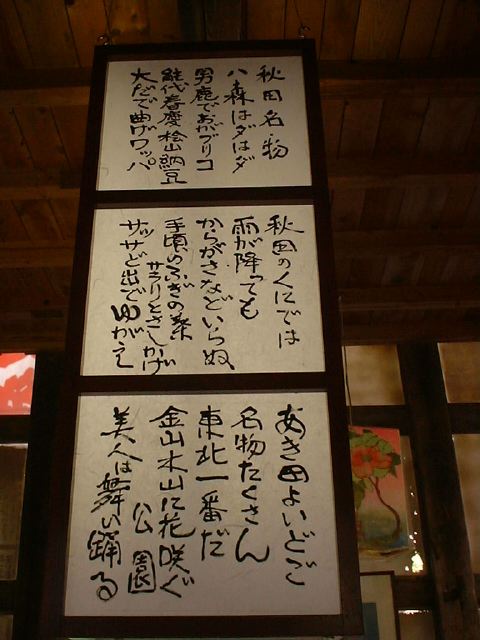 秋田名・物
八森はダはダ
男鹿でおがブリコ
能代春慶桧山納豆
大だで曲げワッパ
秋田のくにでは
雨が降っても
からがさなどいらぬ
手頃のふぎの葉
サラリとさしかげ
サッサど出でゆがえ
あき田よいどご
名物たくさん
東北一番だ
金山木山に花咲ぐ
公園
美人は舞い踊る